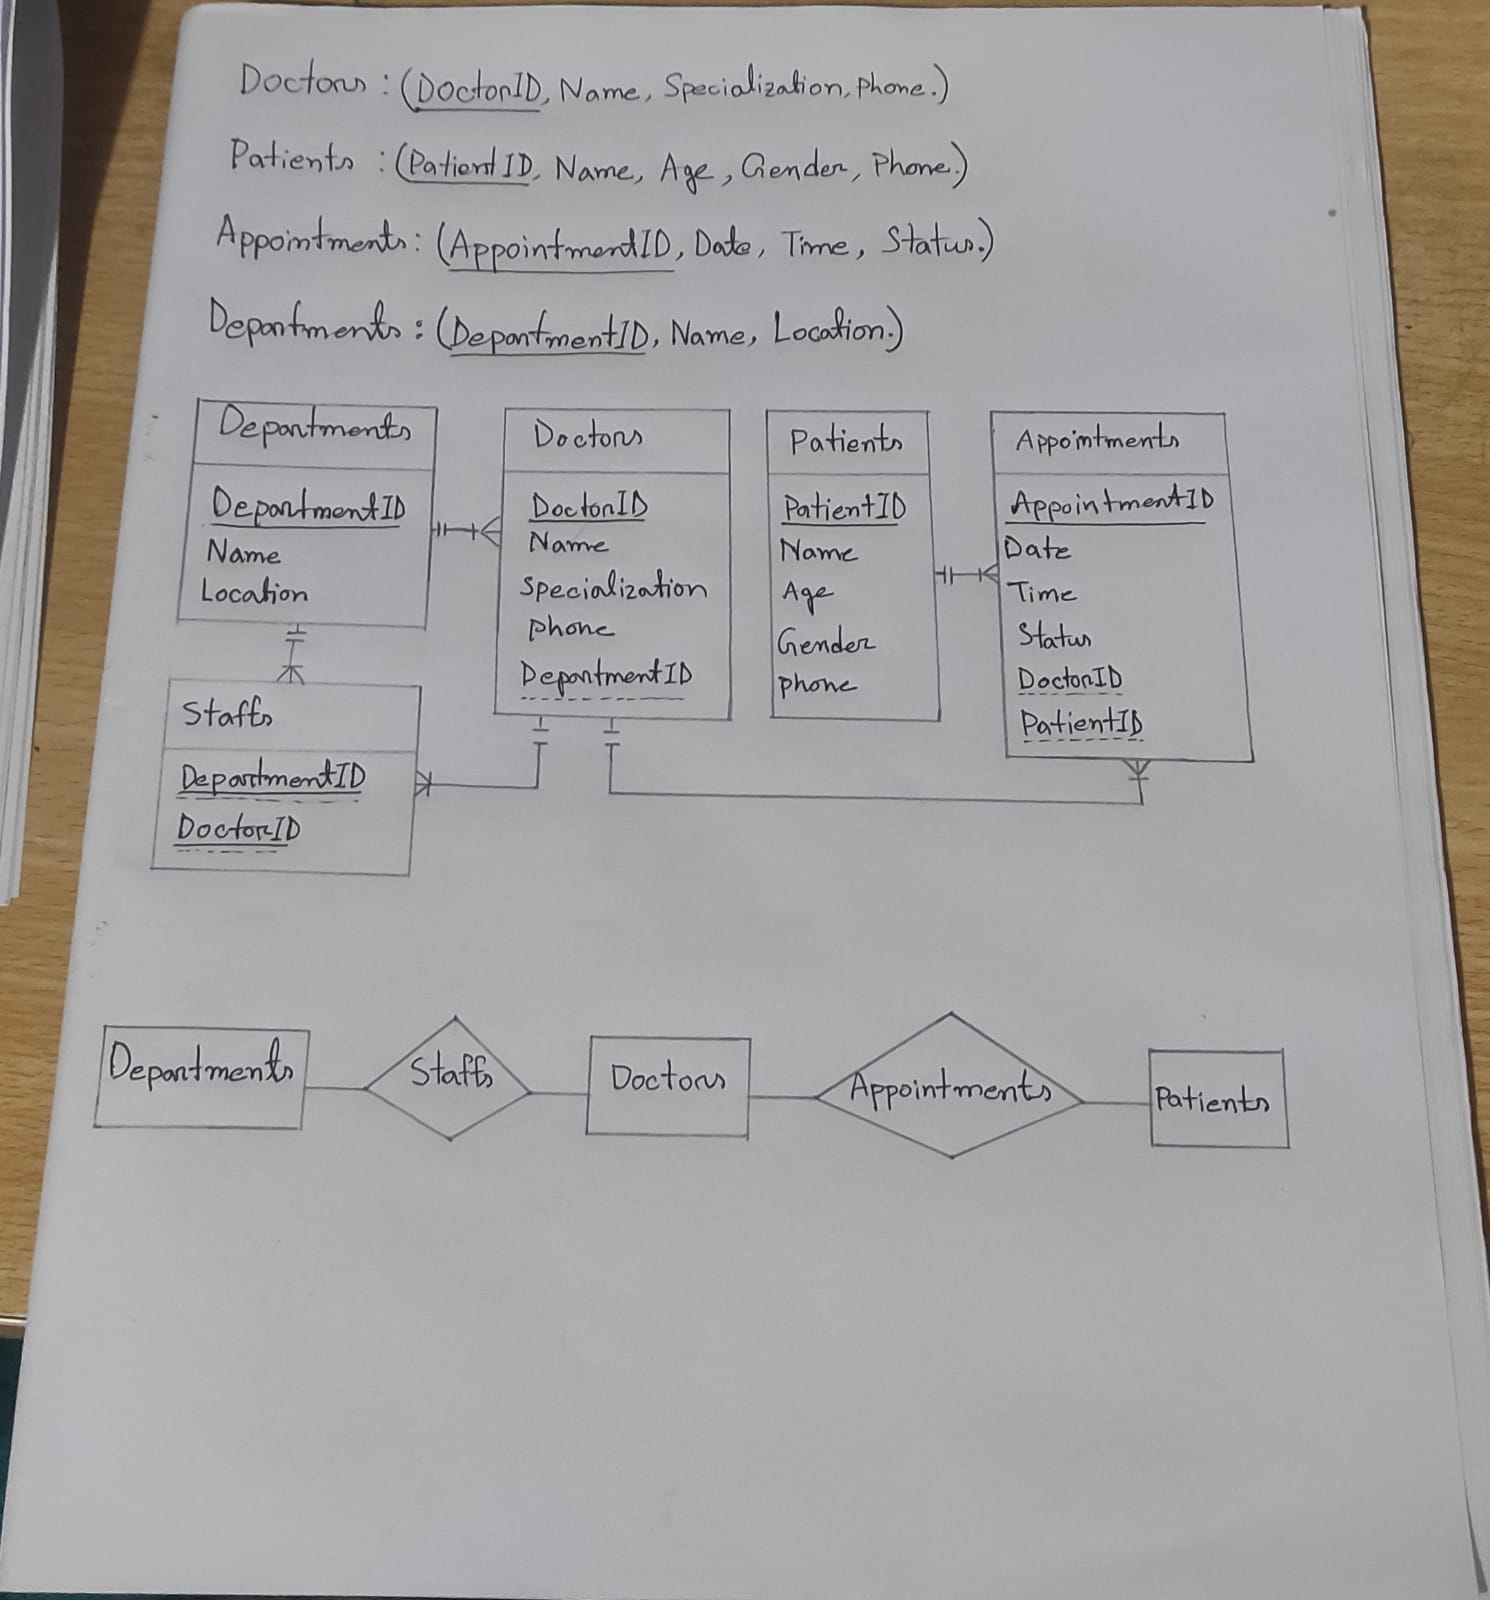 Doctors : (DoctorID, Name, Specialization, Phone.)
Patients : (PatientID, Name, Age, Gender, Phone.)
Appointments : (AppointmentID, Date, Time, Status.)
Departments : (DepartmentID, Name, Location.)
Departments
DepartmentID
Name
Location
Doctors
DoctorID
Name
Specialization
Phone
DepartmentID
Patients
PatientID
Name
Age
Gender
Phone
Appointments
AppointmentID
Date
Time
Status
DoctorID
PatientID
Staffs
DepartmentID
DoctorID
Departments
Staffs
Doctors
Appointments
Patients